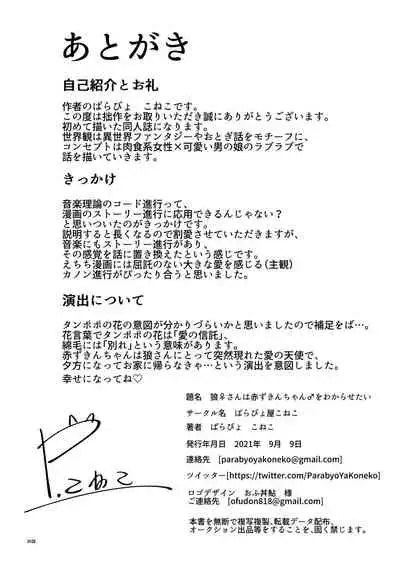 あとがき
自己紹介とお礼
作者のぱらぴょ　こねこです。
この度は拙作をお取りいただき誠にありがとうございます。
初めて描いた同人誌になります。
世界観は異世界ファンタジーやおとぎ話をモチーフに、
コンセプトは肉食系女性×可愛い男の娘のラブラブで
話を描いていきます。
きっかけ
音楽理論のコード進行って、
漫画のストーリー進行に応用できるんじゃない？
と思いついたのがきっかけです。
説明すると長くなるので割愛させていただきますが、
音楽にもストーリー進行があり、
その感覚を話に置き換えたという感じです。
えちち漫画には屈託のない大きな愛を感じる（主観）
カノン進行がぴったり合うと思いました。
演出について
タンポポの花の意図が分かりづらいかと思いましたので補足をば…。
花言葉でタンポポの花は「愛の信託」、
綿毛には「別れ」という意味があります。
赤ずきんちゃんは狼さんにとって突然現れた愛の天使で、
夕方になってお家に帰らなきゃ…という演出を意図しました。
幸せになってね♡
題名　狼♀さんは赤ずきんちゃん♂をわからせたい
サークル名　ぱらぴょ屋こねこ
著者　ぱらぴょ　こねこ
発行年月日　2021年　9月　9日
連絡先　[parabyoyakoneko@gmail.com]
ツイッター[https://twitter.com/ParabyoYaKoneko]
ロゴデザイン　おふ丼鮎　様
ご連絡先　[ofudon818@gmail.com]
P.こねこ
本書を無断で複写複製、転載データ配布、
オークション出品等をすることを、固く禁じます。